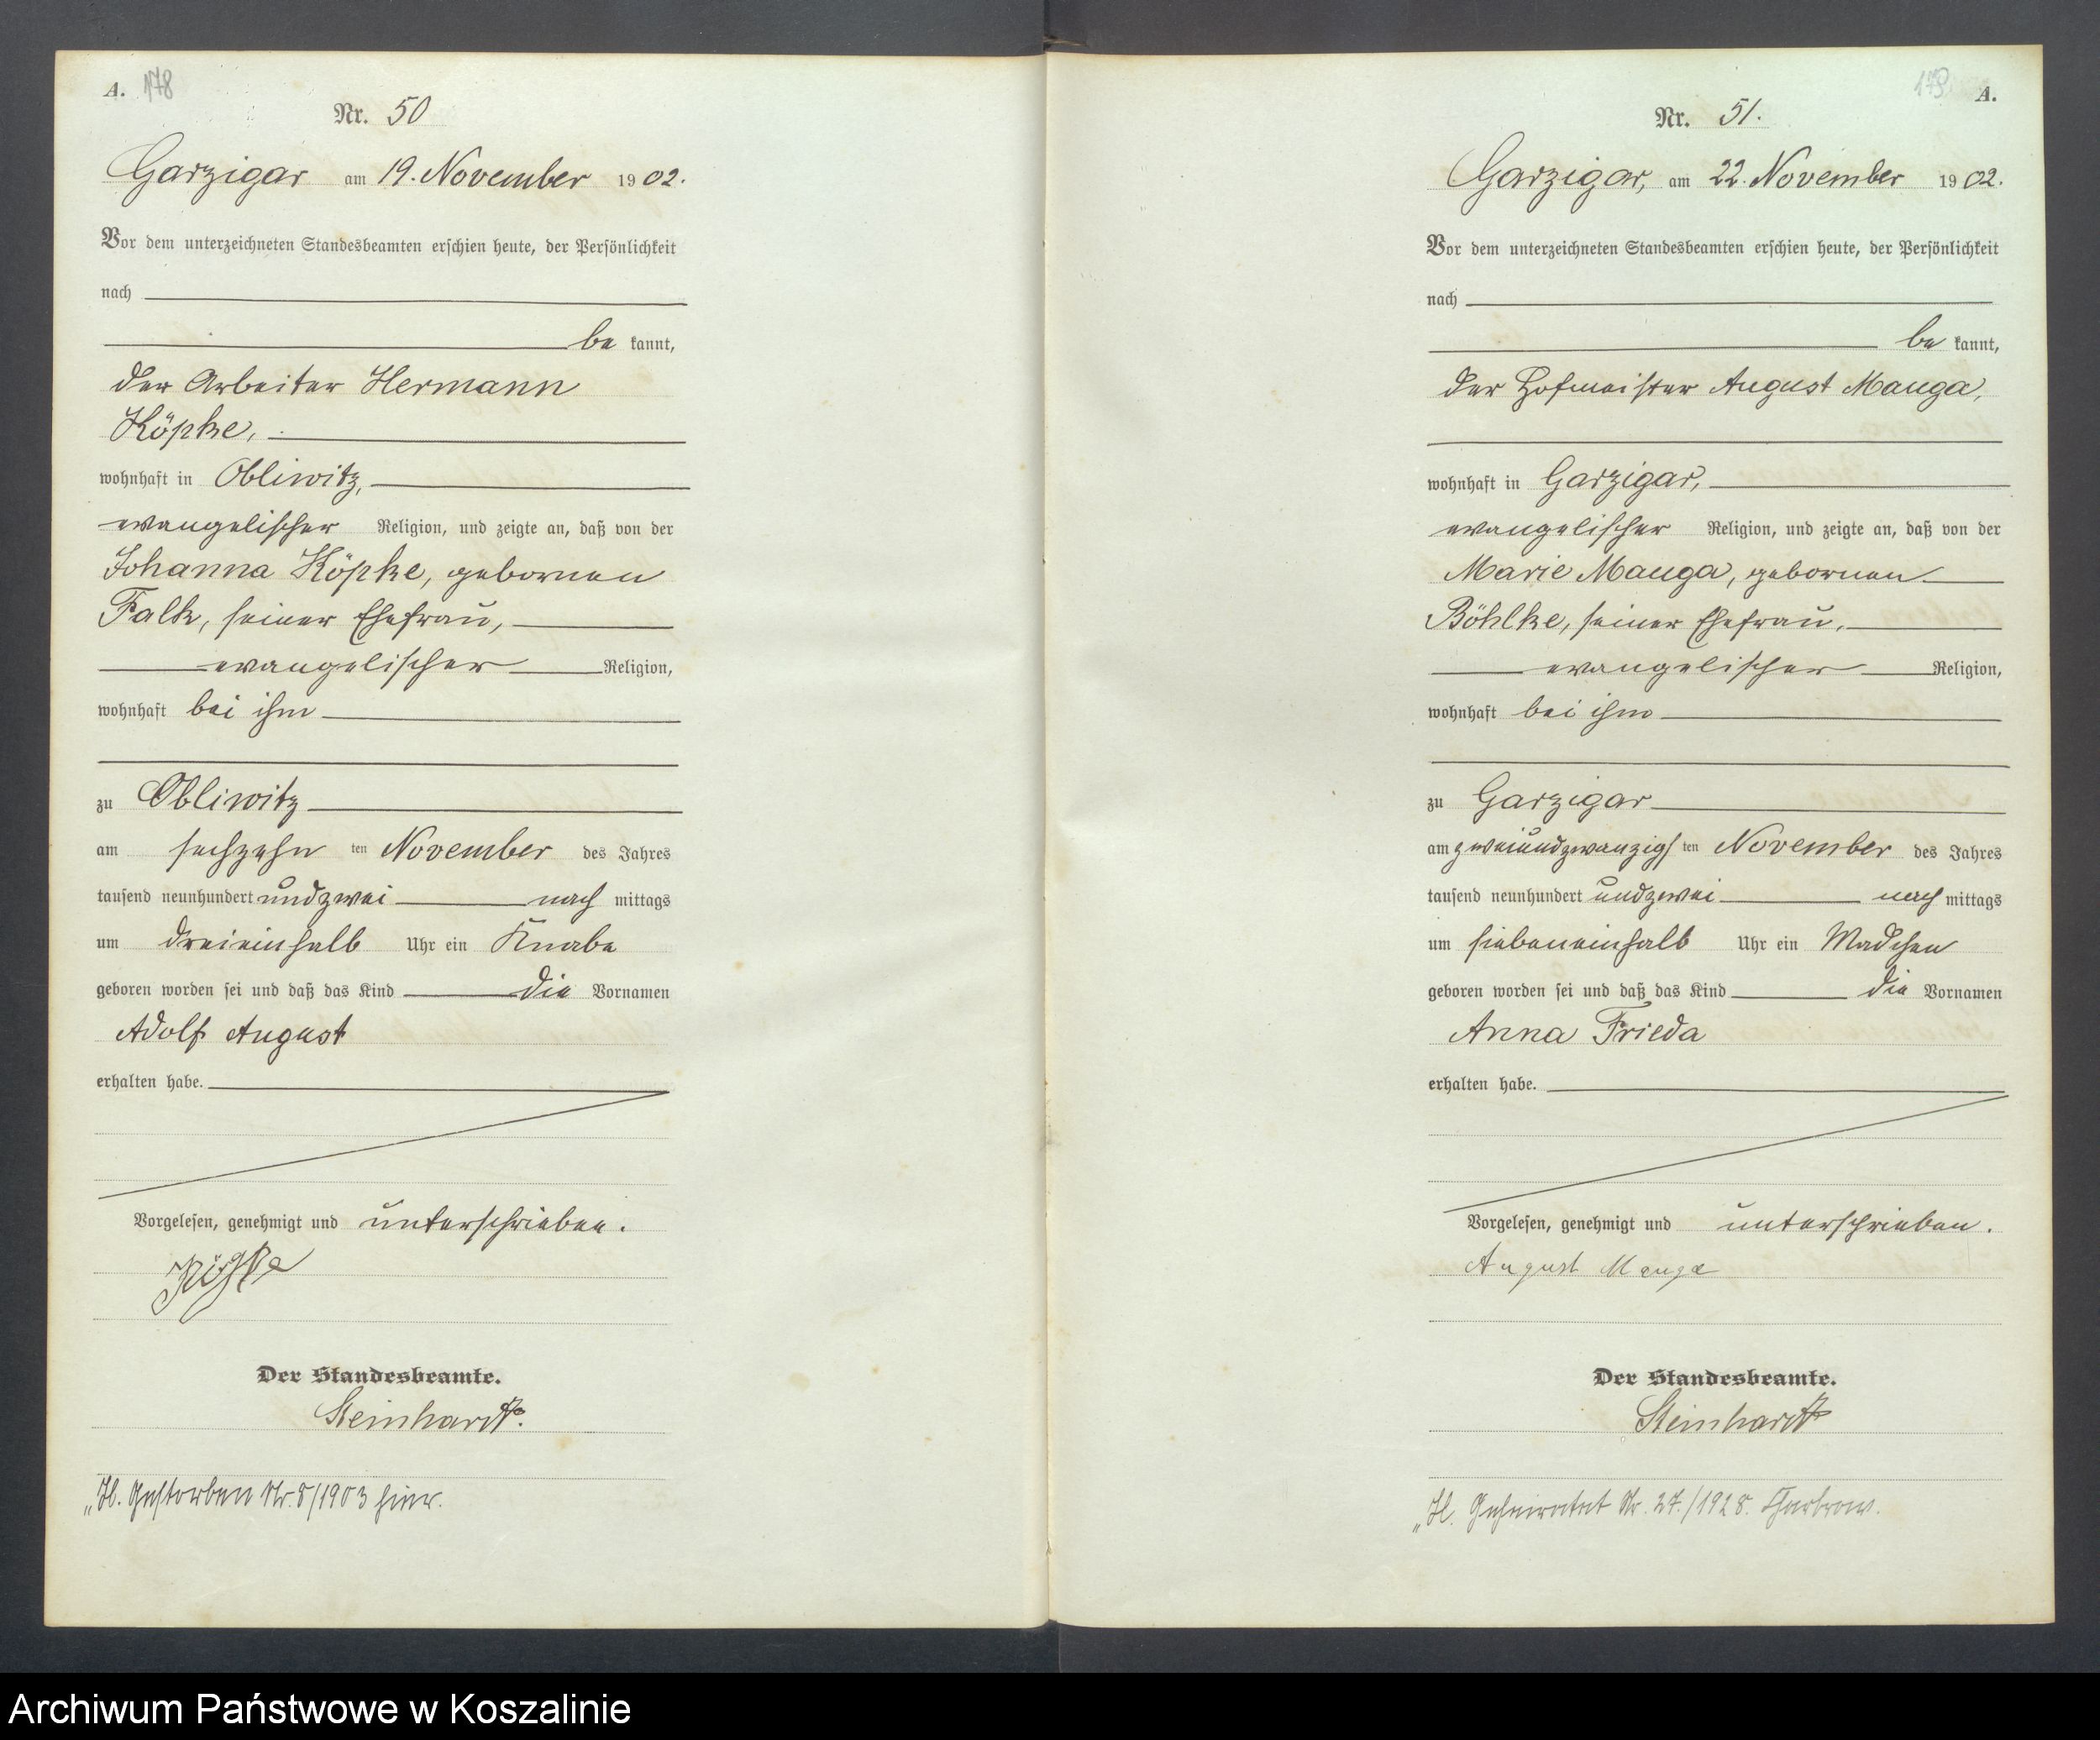 A. 178
Nr. 50
Garzigar am 19. November 1902.
Vor dem unterzeichneten Standesbeamten erschien heute, der Persönlichkeit
nach
be kannt,
der Arbeiter Hermann
Köpke,
wohnhaft in Obliwitz,
evangelischer Religion, und zeigte an, daß von der
Johanna Köpke, gebornen
Falk, seiner Ehefrau,
evangelischer Religion,
wohnhaft bei ihm
zu Obliwitz
am sechzehn ten November des Jahres
tausend neunhundert undzwei nach mittags
um dreieinhalb Uhr ein Knabe
geboren worden sei und daß das Kind die Vornamen
Adolf August
erhalten habe.
Vorgelesen, genehmigt und unterschrieben.
Köpke
Der Standesbeamte.
Steinhardt.
„H. Gestorben Nr. 8/1903 hier.
179 A.
Nr. 51.
Garzigar, am 22. November 1902.
Vor dem unterzeichneten Standesbeamten erschien heute, der Persönlichkeit
nach
be kannt,
der Hofmeister August Manga,
wohnhaft in Garzigar,
evangelischer Religion, und zeigte an, daß von der
Marie Manga, gebornen
Böhlke, seiner Ehefrau,
evangelischer Religion,
wohnhaft bei ihm
zu Garzigar
am zweiundzwanzigs ten November des Jahres
tausend neunhundert undzwei nach mittags
um siebeneinhalb Uhr ein Mädchen
geboren worden sei und daß das Kind die Vornamen
Anna Frieda
erhalten habe.
Vorgelesen, genehmigt und unterschrieben.
August Manga
Der Standesbeamte.
Steinhardt
„H. Geheiratet Nr. 27./1928. Charbrow.
Archiwum Państwowe w Koszalinie